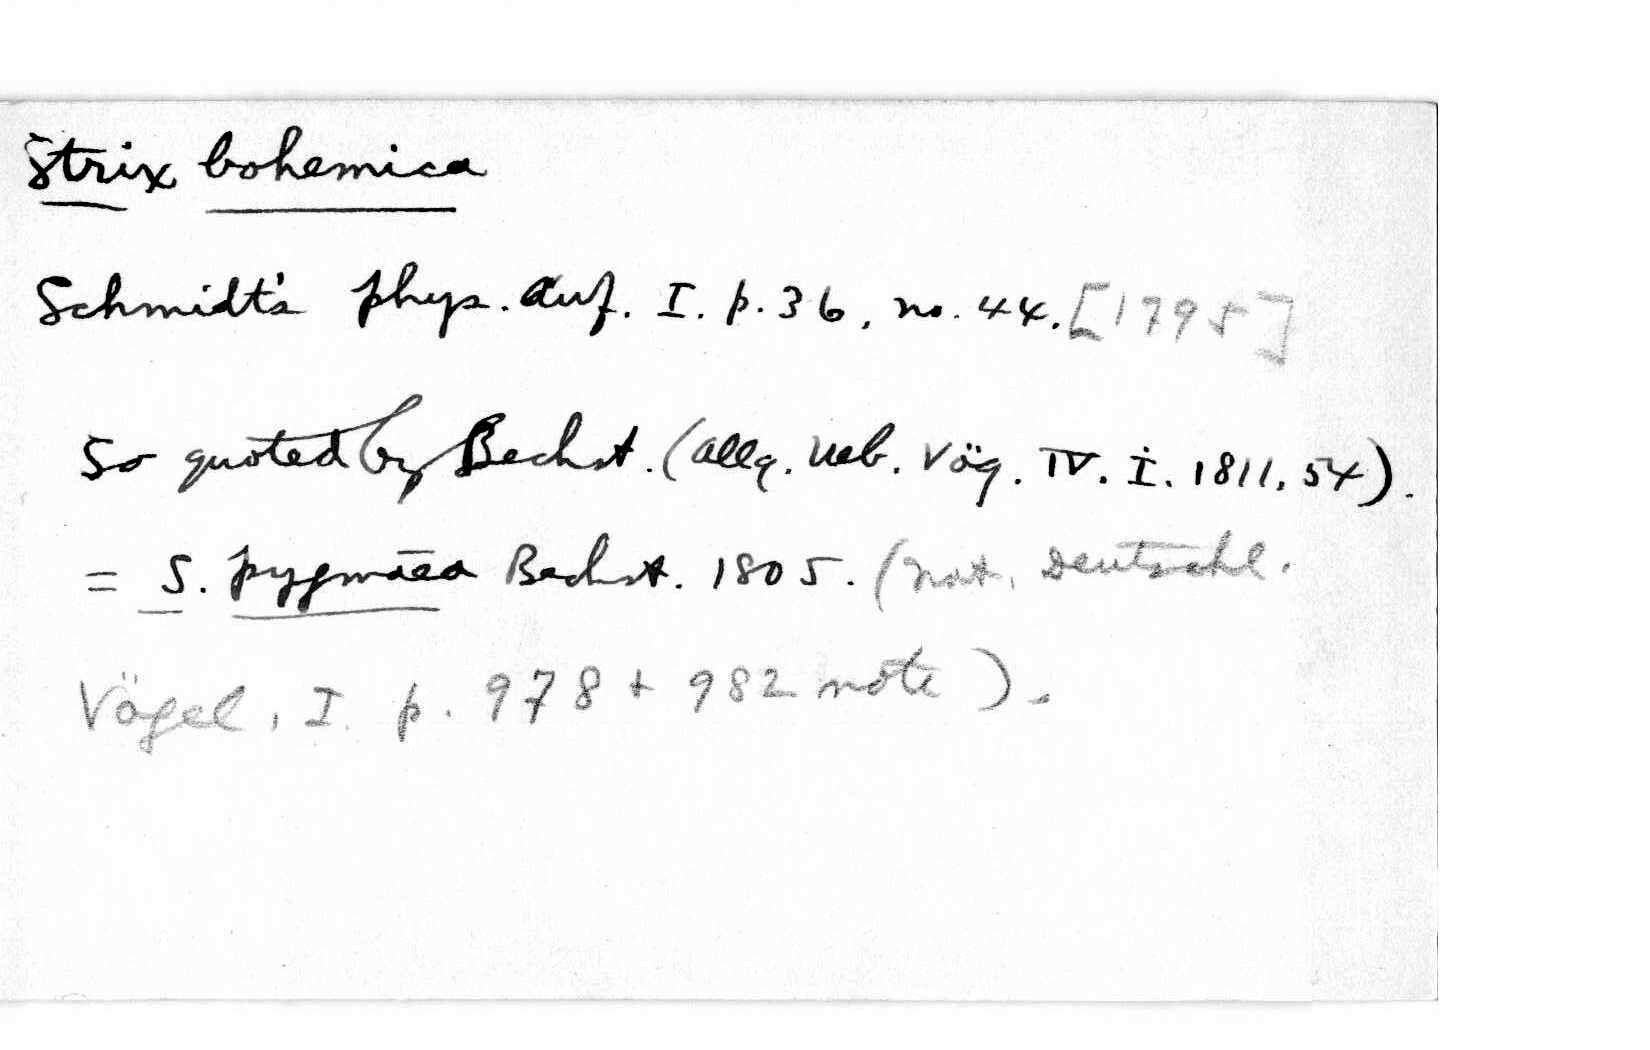 Strix bohemica
Schmidt's phys. Auf. I. p. 36, no. 44. [1795]
So quoted by Bechst. (Allg. Ueb. Vög. IV. I. 1811, 54).
= S. pygmaea Bechst. 1805. (Nat. Deutschl.
Vögel, I. p. 978 + 982 note).